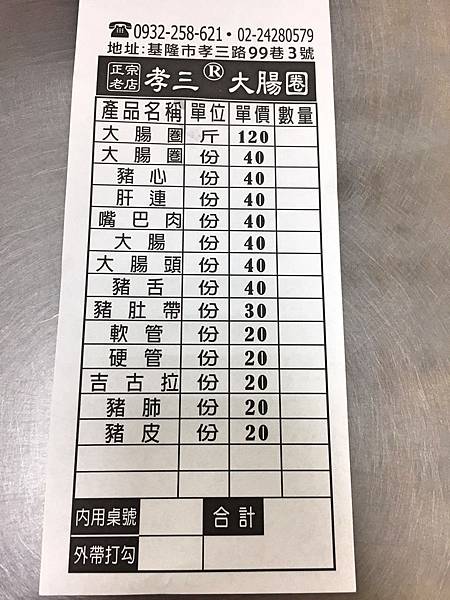 ☎0932-258-621•02-24280579
地址:基隆市孝三路99巷3號
正宗老店 孝三®大腸圈
產品名稱 單位 單價 數量
大腸圈 斤 120
大腸圈 份 40
豬心 份 40
肝連 份 40
嘴巴肉 份 40
大腸 份 40
大腸頭 份 40
豬舌 份 40
豬肚帶 份 30
軟管 份 20
硬管 份 20
吉古拉 份 20
豬肺 份 20
豬皮 份 20
內用桌號 合計
外帶打勾